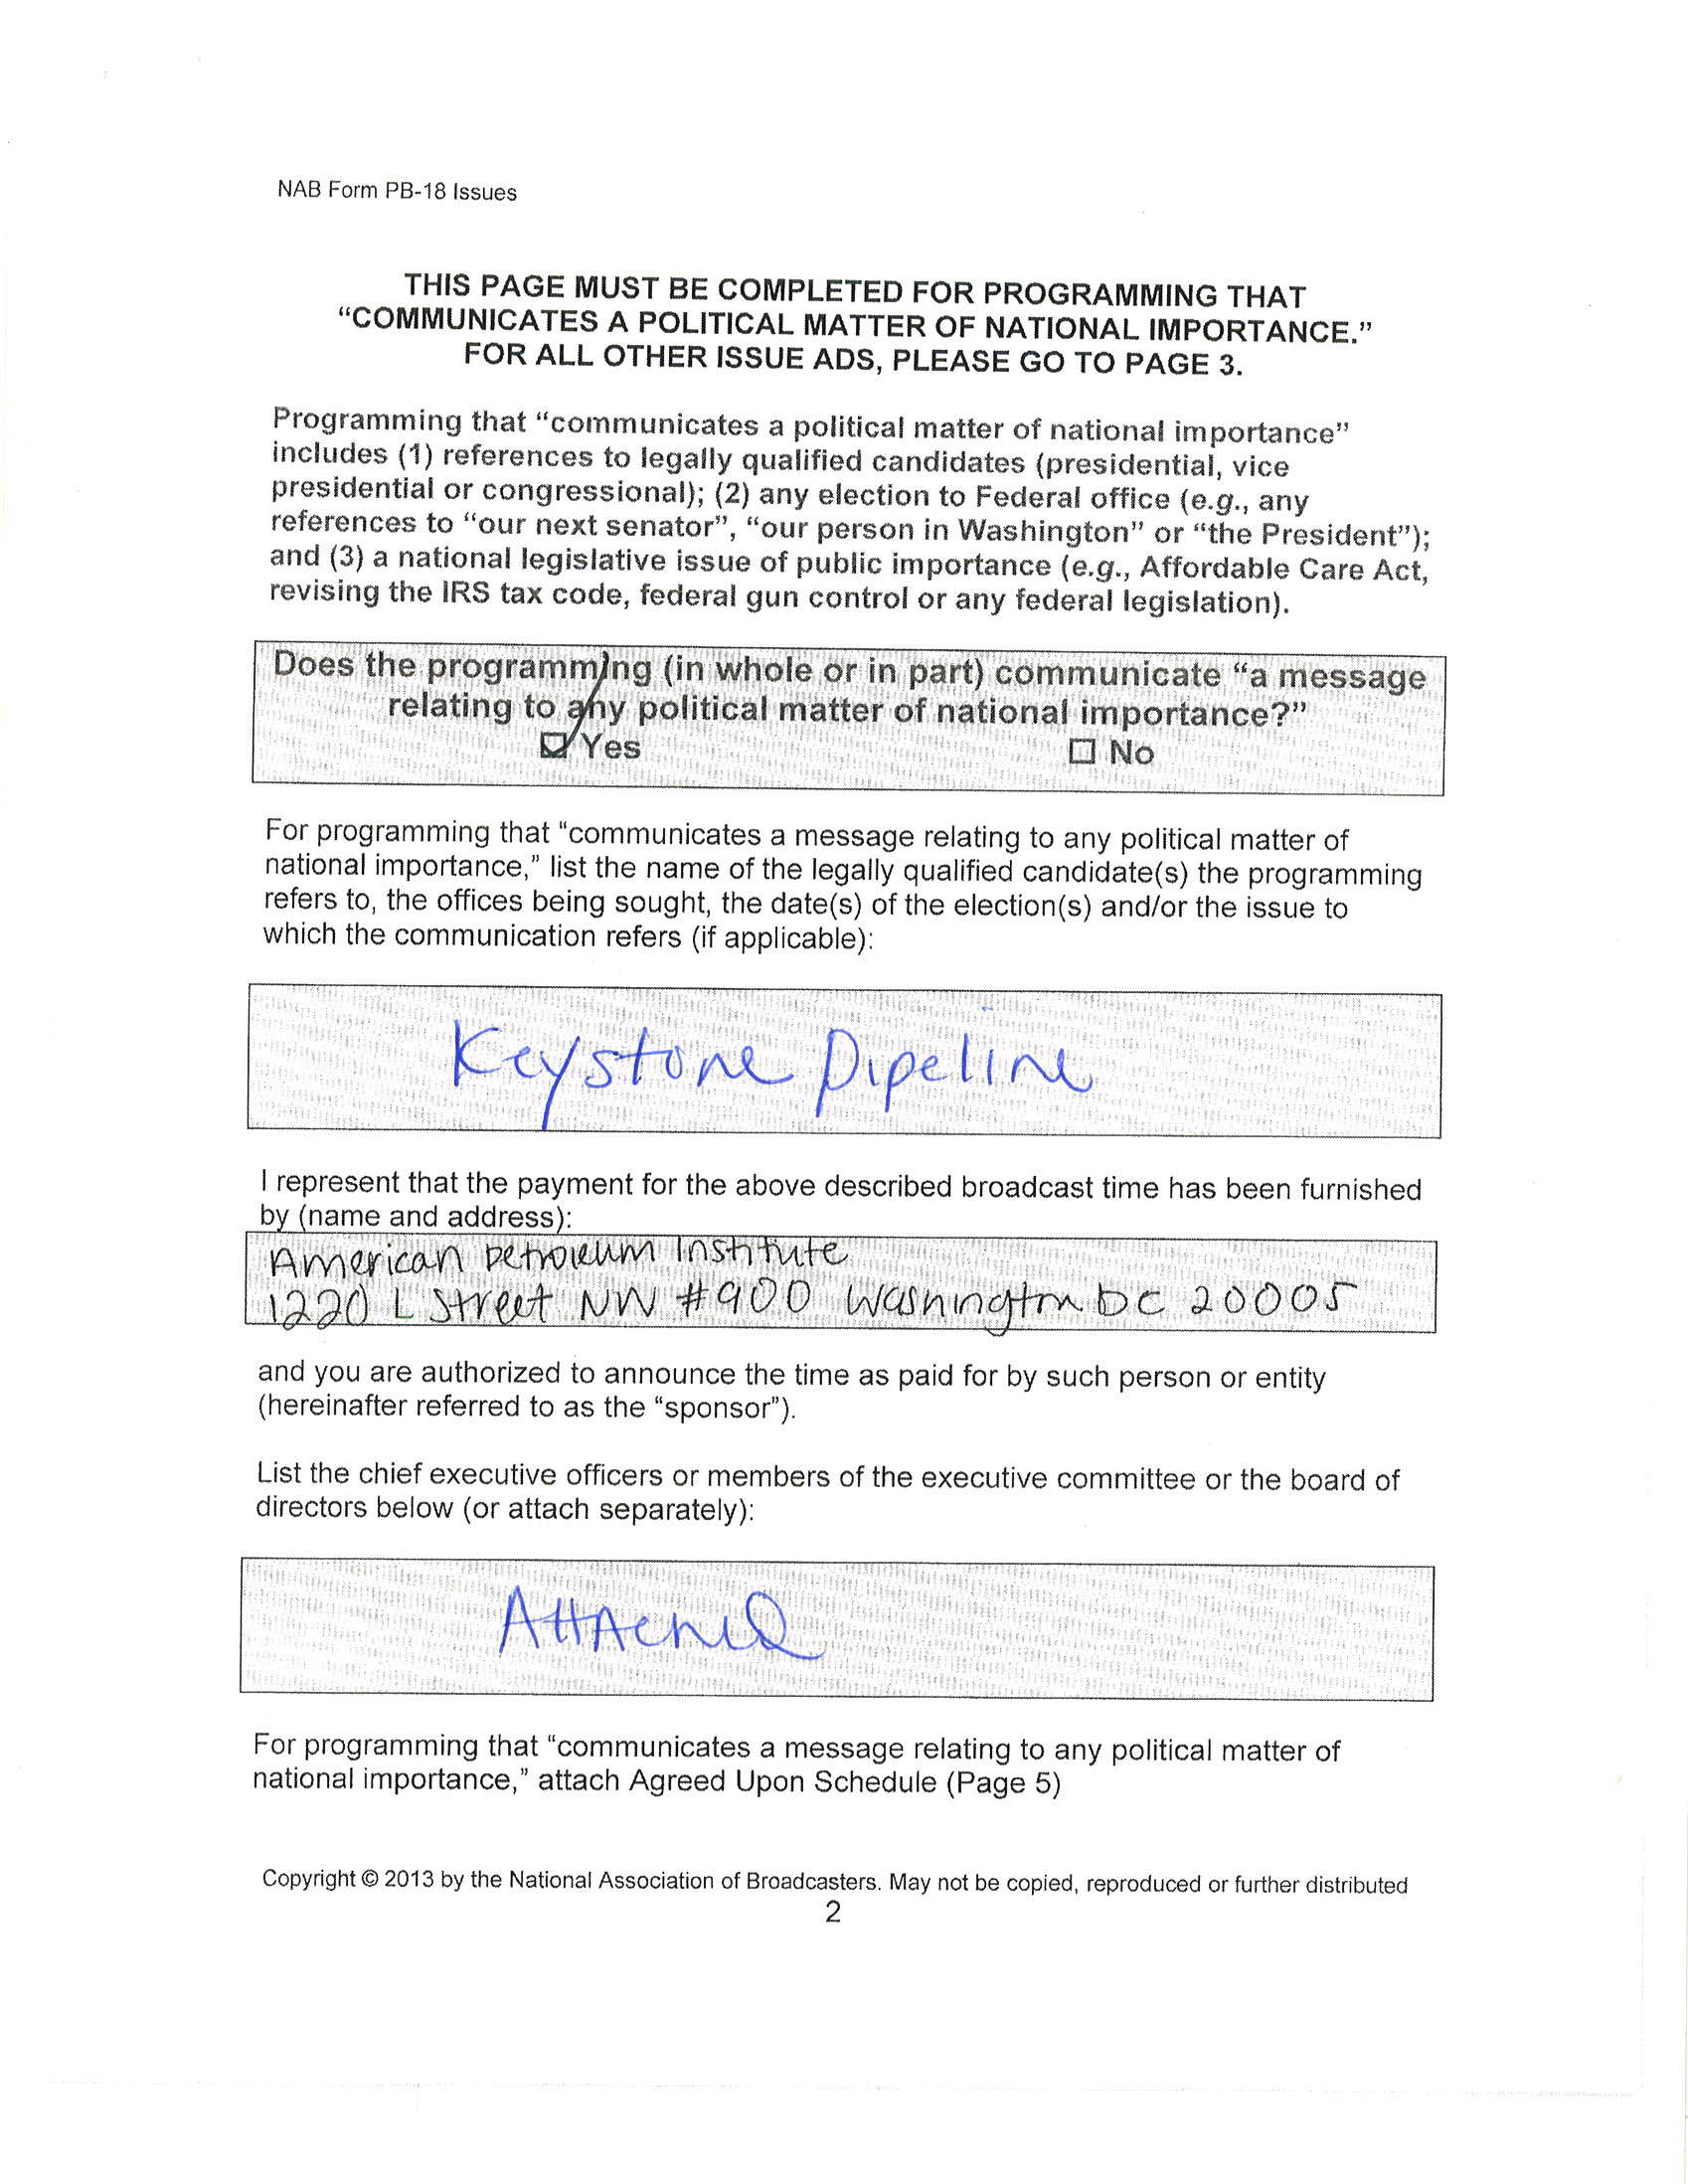 NAB Form PB-18 Issues
THIS PAGE MUST BE COMPLETED FOR PROGRAMMING THAT
“COMMUNICATES A POLITICAL MATTER OF NATIONAL IMPORTANCE.”
FOR ALL OTHER ISSUE ADS, PLEASE GO TO PAGE 3.
Programming that “communicates a political matter of national importance”
includes (1) references to legally qualified candidates (presidential, vice
presidential or congressional); (2) any election to Federal office (e.g., any
references to “our next senator”, “our person in Washington” or “the President”);
and (3) a national legislative issue of public importance (e.g., Affordable Care Act,
revising the IRS tax code, federal gun control or any federal legislation).
Does the programming (in whole or in part) communicate “a message
relating to any political matter of national importance?”
☑ Yes ☐ No
For programming that “communicates a message relating to any political matter of
national importance,” list the name of the legally qualified candidate(s) the programming
refers to, the offices being sought, the date(s) of the election(s) and/or the issue to
which the communication refers (if applicable):
Keystone Pipeline
I represent that the payment for the above described broadcast time has been furnished
by (name and address):
American Petroleum Institute
1220 L Street NW #900 Washington DC 20005
and you are authorized to announce the time as paid for by such person or entity
(hereinafter referred to as the “sponsor”).
List the chief executive officers or members of the executive committee or the board of
directors below (or attach separately):
Attached
For programming that “communicates a message relating to any political matter of
national importance,” attach Agreed Upon Schedule (Page 5)
Copyright © 2013 by the National Association of Broadcasters. May not be copied, reproduced or further distributed
2